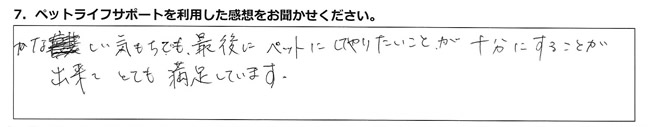 7. ペットライフサポートを利用した感想をお聞かせください。
かなしい気もちでも、最後に ペットに してやりたいこと が 十分にすることが
出来て とても 満足しています。